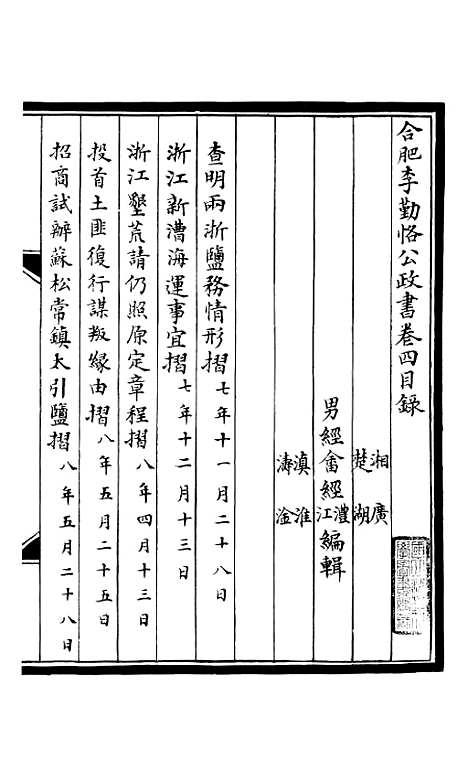 合肥李勤恪公政書卷四目錄
湘 廣
楚 湖
男經畬經灃江編輯
滇 淮
濤 淦
查明兩浙鹽務情形摺 七年十一月二十八日
浙江新漕海運事宜摺 七年十二月十三日
浙江墾荒請仍照原定章程摺 八年四月十三日
投首土匪復行謀叛緣由摺 八年五月二十五日
招商試辦蘇松常鎮太引鹽摺 八年五月二十八日